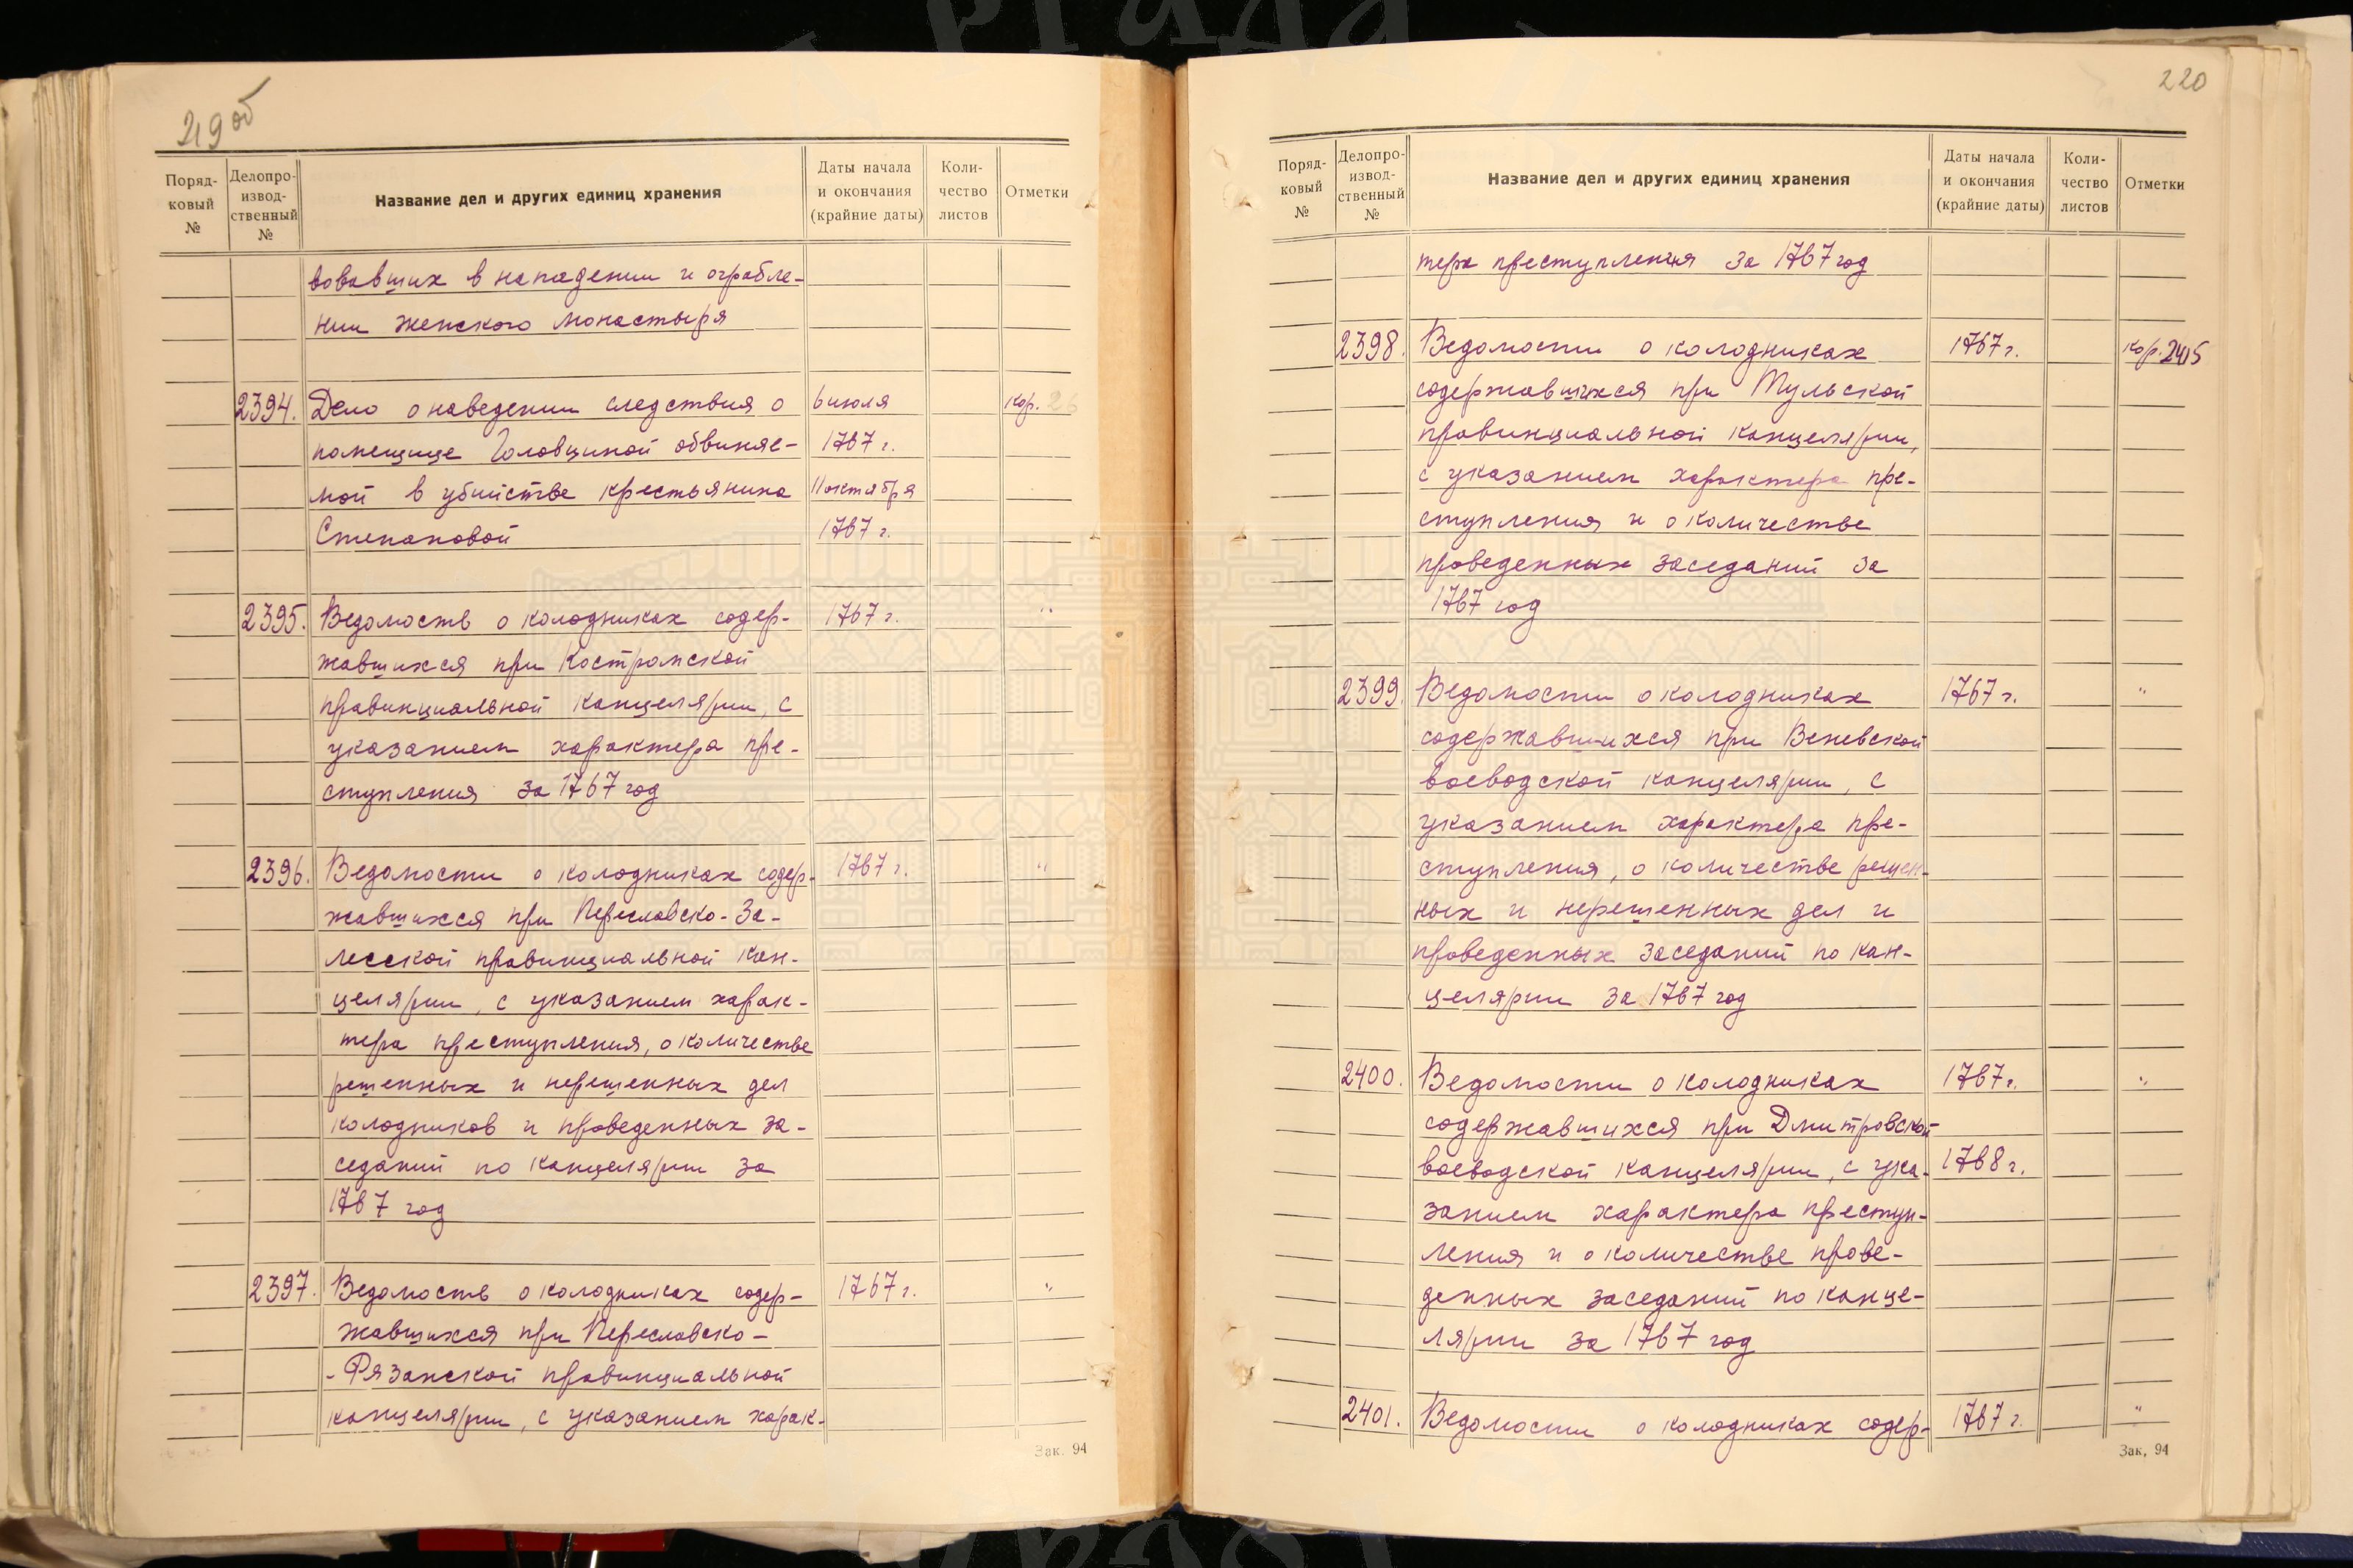 219 об
Поряд-
ковый
№
Делопро-
извод-
ственный
№
Название дел и других единиц хранения
Даты начала
и окончания
(крайние даты)
Коли-
чество
листов
Отметки
вовавших в нападении и ограбле-
нии женского монастыря
2394. Дело о наведении следствия о 6 июля кор. 26
помещице Головциной обвиняе- 1767 г.
мой в убийстве крестьянина 11 октября
Степановой 1767 г.
2395. Ведомость о колодниках содер- 1767 г. "
жавшихся при Костромской
провинциальной канцелярии, с
указанием характера пре-
ступления за 1767 год
2396. Ведомости о колодниках содер- 1767 г. "
жавшихся при Переславско-За-
лесской провинциальной кан-
целярии, с указанием харак-
тера преступления, о количестве
решенных и нерешенных дел
колодников и проведенных за-
седаний по канцелярии за
1767 год
2397. Ведомость о колодниках содер- 1767 г. "
жавшихся при Переславско-
-Рязанской провинциальной
канцелярии, с указанием харак-
Зак. 94
220
Поряд-
ковый
№
Делопро-
извод-
ственный
№
Название дел и других единиц хранения
Даты начала
и окончания
(крайние даты)
Коли-
чество
листов
Отметки
тера преступления за 1767 год
2398. Ведомости о колодниках 1767 г. кор. 2415
содержавшихся при Тульской
провинциальной канцелярии,
с указанием характера пре-
ступления и о количестве
проведенных заседаний за
1767 год
2399. Ведомости о колодниках 1767 г. "
содержавшихся при Веневской
воеводской канцелярии, с
указанием характера пре-
ступления, о количестве решен-
ных и нерешенных дел и
проведенных заседаний по кан-
целярии за 1767 год
2400. Ведомости о колодниках 1767 г. "
содержавшихся при Дмитровской
воеводской канцелярии, с ука- 1768 г.
занием характера преступ-
ления и о количестве прове-
денных заседаний по канце-
лярии за 1767 год
2401. Ведомости о колодниках содер- 1767 г. "
Зак. 94